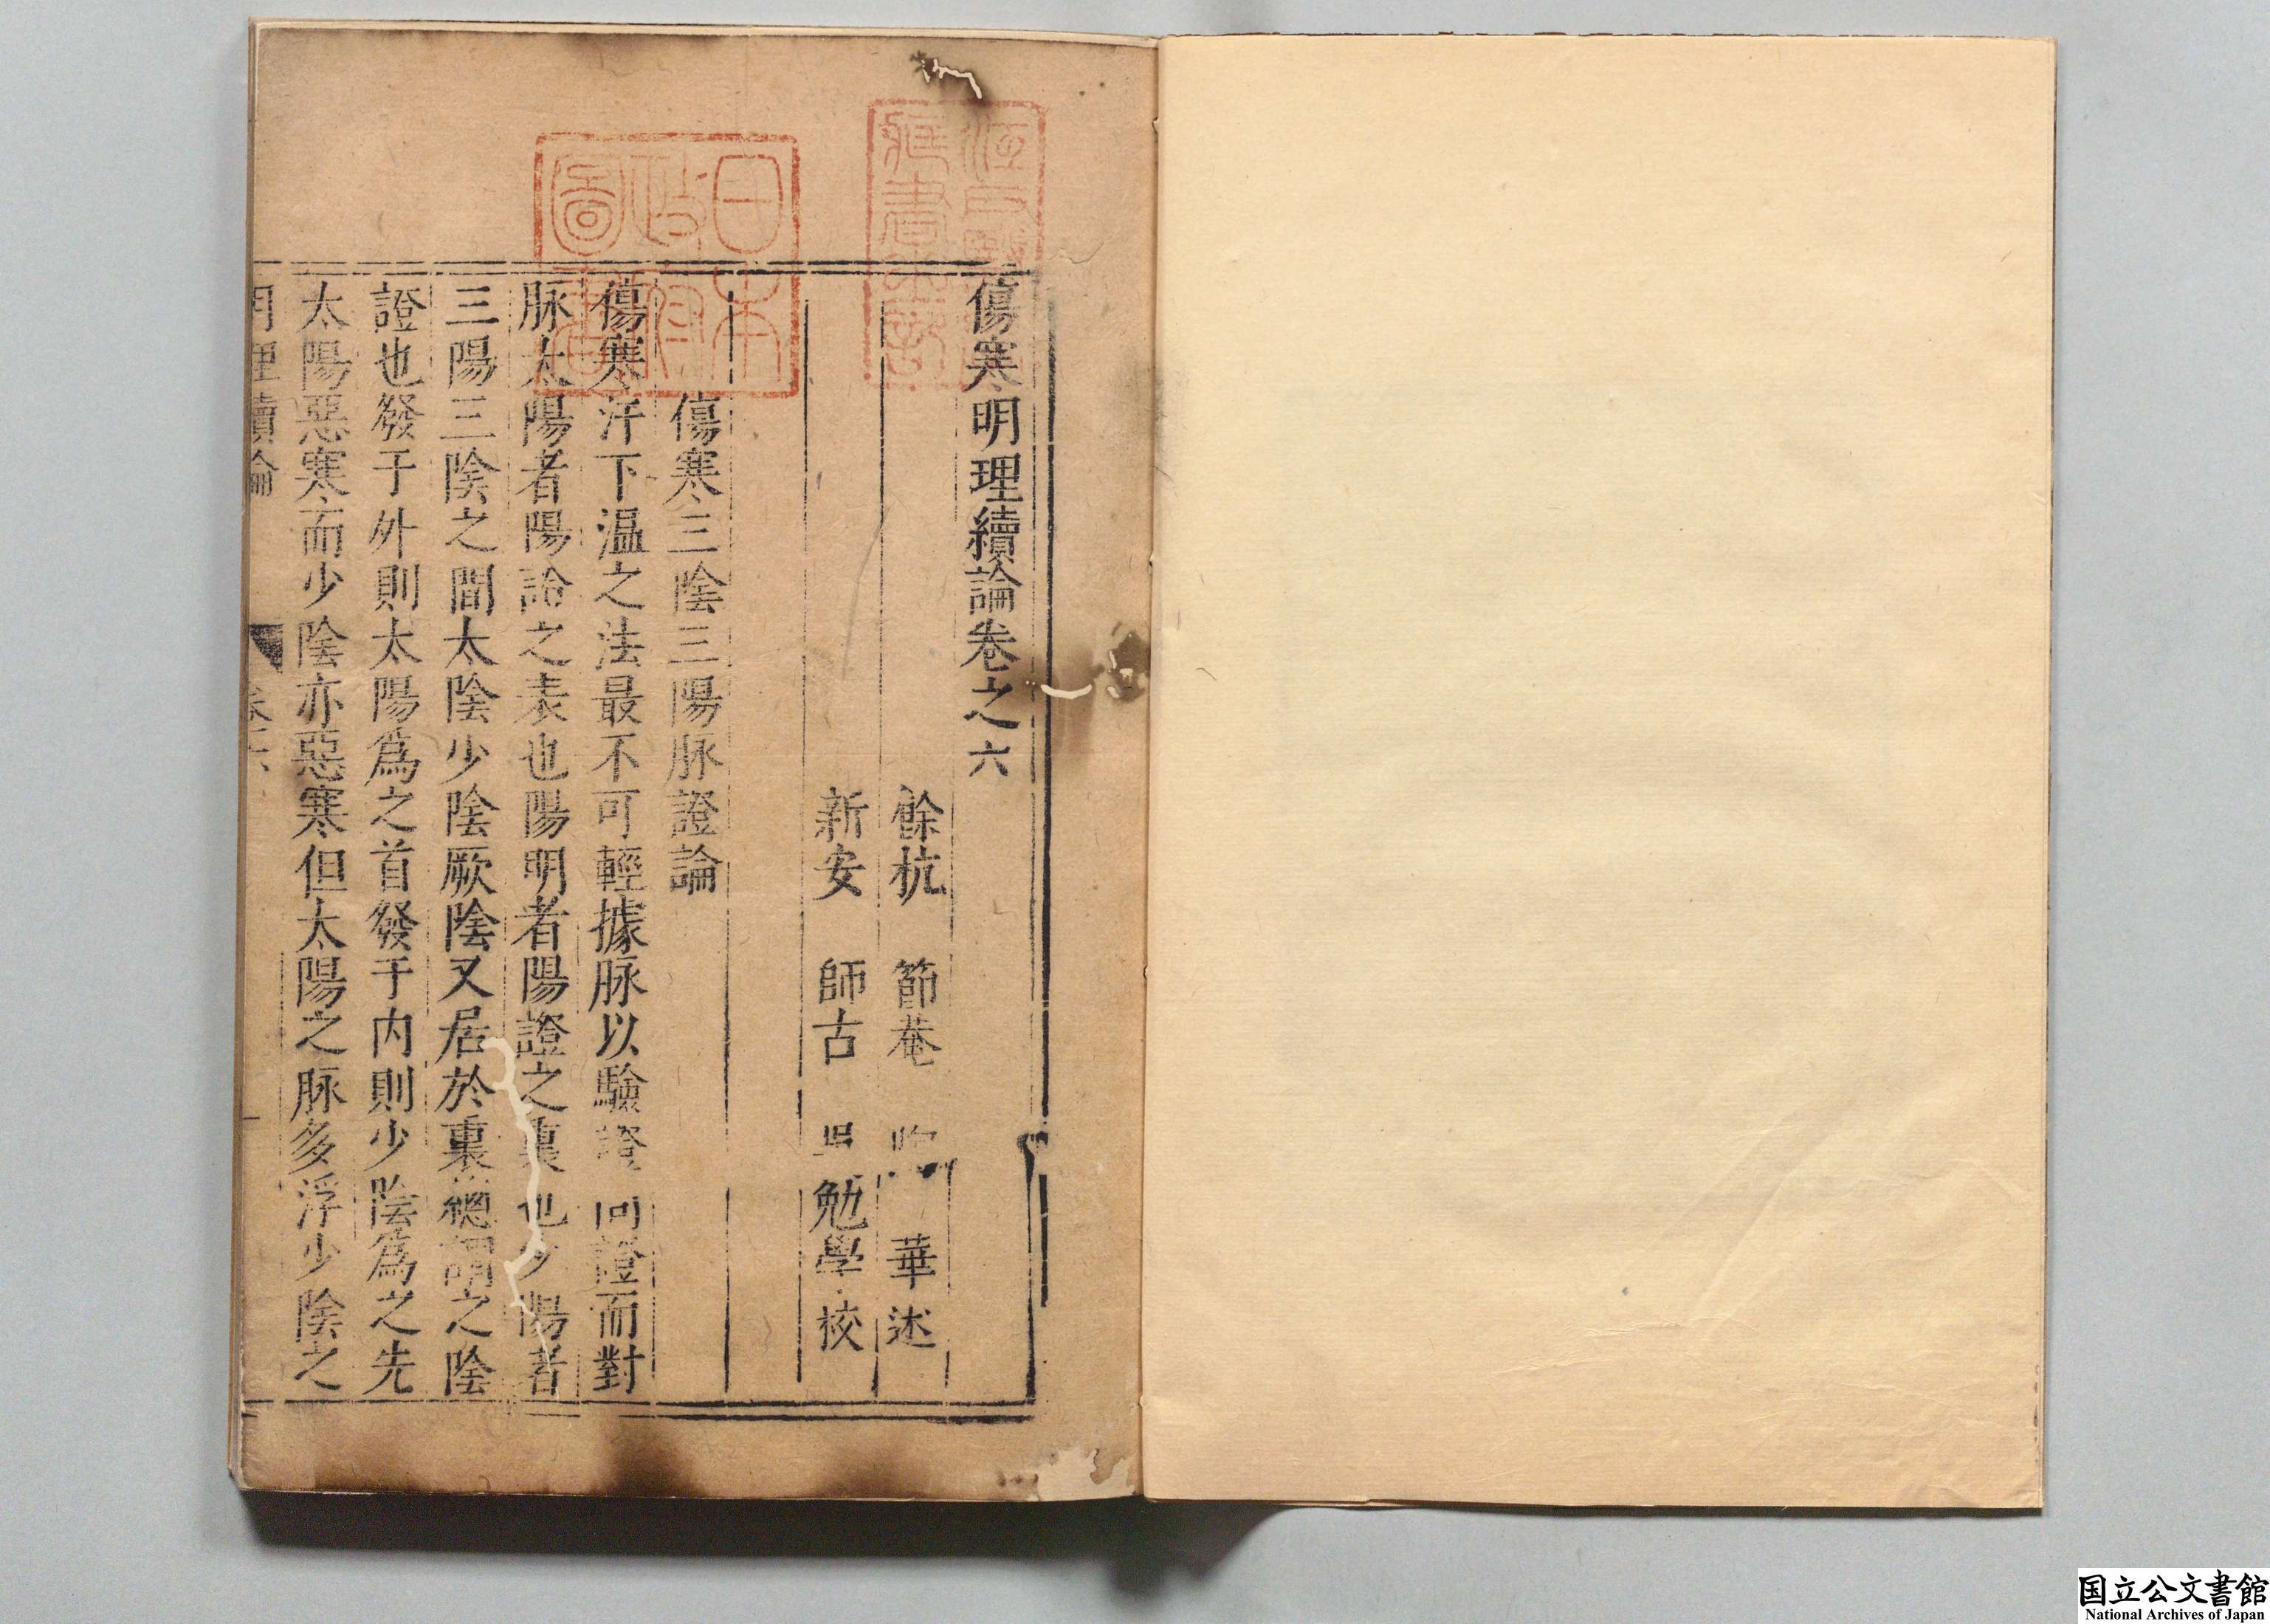 傷寒明理續論卷之六
餘杭 節菴 華述
新安 師古 吳勉學校
傷寒三陰三陽脉證論
傷寒汗下温之法最不可輕據脉以驗證問證而對
脉太陽者陽證之表也陽明者陽證之裏也少陽者
三陽三陰之間太陰少陰厥陰又居於裏總謂之陰
證也發于外則太陽爲之首發于内則少陰爲之先
太陽惡寒而少陰亦惡寒但太陽之脉多浮少陰之
明理續論 卷之六
日本政府圖書
国立公文書館
National Archives of Japan